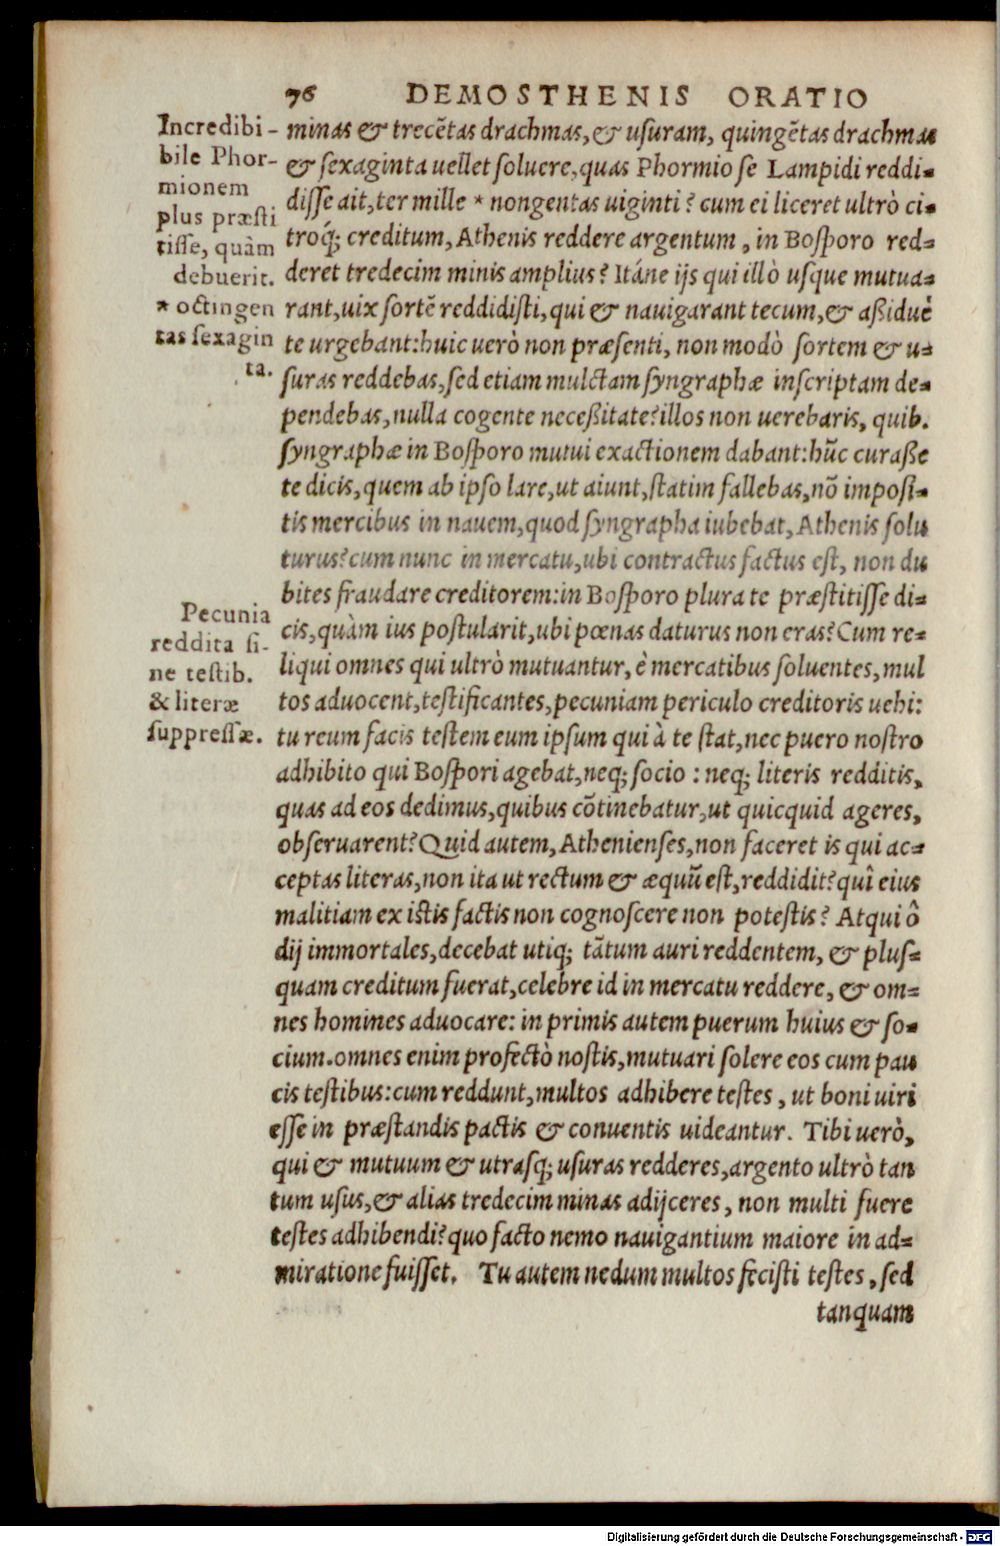 76 DEMOSTHENIS ORATIO
Incredibi-
bile Phor-
mionem
plus præsti
tisse, quàm
debuerit.
* octingen
tas sexagin
ta.
minas & trecẽtas drachmas, & usuram, quingẽtas drachmas
& sexaginta uellet soluere, quas Phormio se Lampidi reddi-
disse ait, ter mille * nongentas uiginti? cum ei liceret ultrò ci-
troq́; creditum, Athenis reddere argentum, in Bosporo red-
deret tredecim minis amplius? Itáne ijs qui illò usque mutua-
rant, uix sortẽ reddidisti, qui & nauigarant tecum, & aßiduè
te urgebant: huic uerò non præsenti, non modò sortem & u-
suras reddebas, sed etiam mulctam syngraphæ inscriptam de-
pendebas, nulla cogente neceßitate? illos non uerebaris, quib.
syngraphæ in Bosporo mutui exactionem dabant: hũc curaße
te dicis, quem ab ipso lare, ut aiunt, statim fallebas, nõ imposi-
tis mercibus in nauem, quod syngrapha iubebat, Athenis solu
turus? cum nunc in mercatu, ubi contractus factus est, non du
bites fraudare creditorem: in Bosporo plura te præstitisse di-
cis, quàm ius postularit, ubi pœnas daturus non eras? Cum re-
liqui omnes qui ultrò mutuantur, è mercatibus soluentes, mul
tos aduocent, testificantes, pecuniam periculo creditoris uehi:
tu reum facis testem eum ipsum qui à te stat, nec puero nostro
adhibito qui Bospori agebat, neq; socio: neq; literis redditis,
quas ad eos dedimus, quibus cõtinebatur, ut quicquid ageres,
obseruarent? Quid autem, Athenienses, non faceret is qui ac-
ceptas literas, non ita ut rectum & æquũ est, reddidit? quî eius
malitiam ex istis factis non cognoscere non potestis? Atqui ô
dij immortales, decebat utiq; tãtum auri reddentem, & plus-
quam creditum fuerat, celebre id in mercatu reddere, & om-
nes homines aduocare: in primis autem puerum huius & so-
cium. omnes enim profectò nostis, mutuari solere eos cum pau
cis testibus: cum reddunt, multos adhibere testes, ut boni uiri
esse in præstandis pactis & conuentis uideantur. Tibi uerò,
qui & mutuum & utrasq; usuras redderes, argento ultrò tan
tum usus, & alias tredecim minas adijceres, non multi fuere
testes adhibendi? quo facto nemo nauigantium maiore in ad-
miratione fuisset. Tu autem nedum multos fecisti testes, sed
tanquam
Pecunia
reddita si-
ne testib.
& literæ
suppressæ.
Digitalisierung gefördert durch die Deutsche Forschungsgemeinschaft - DFG